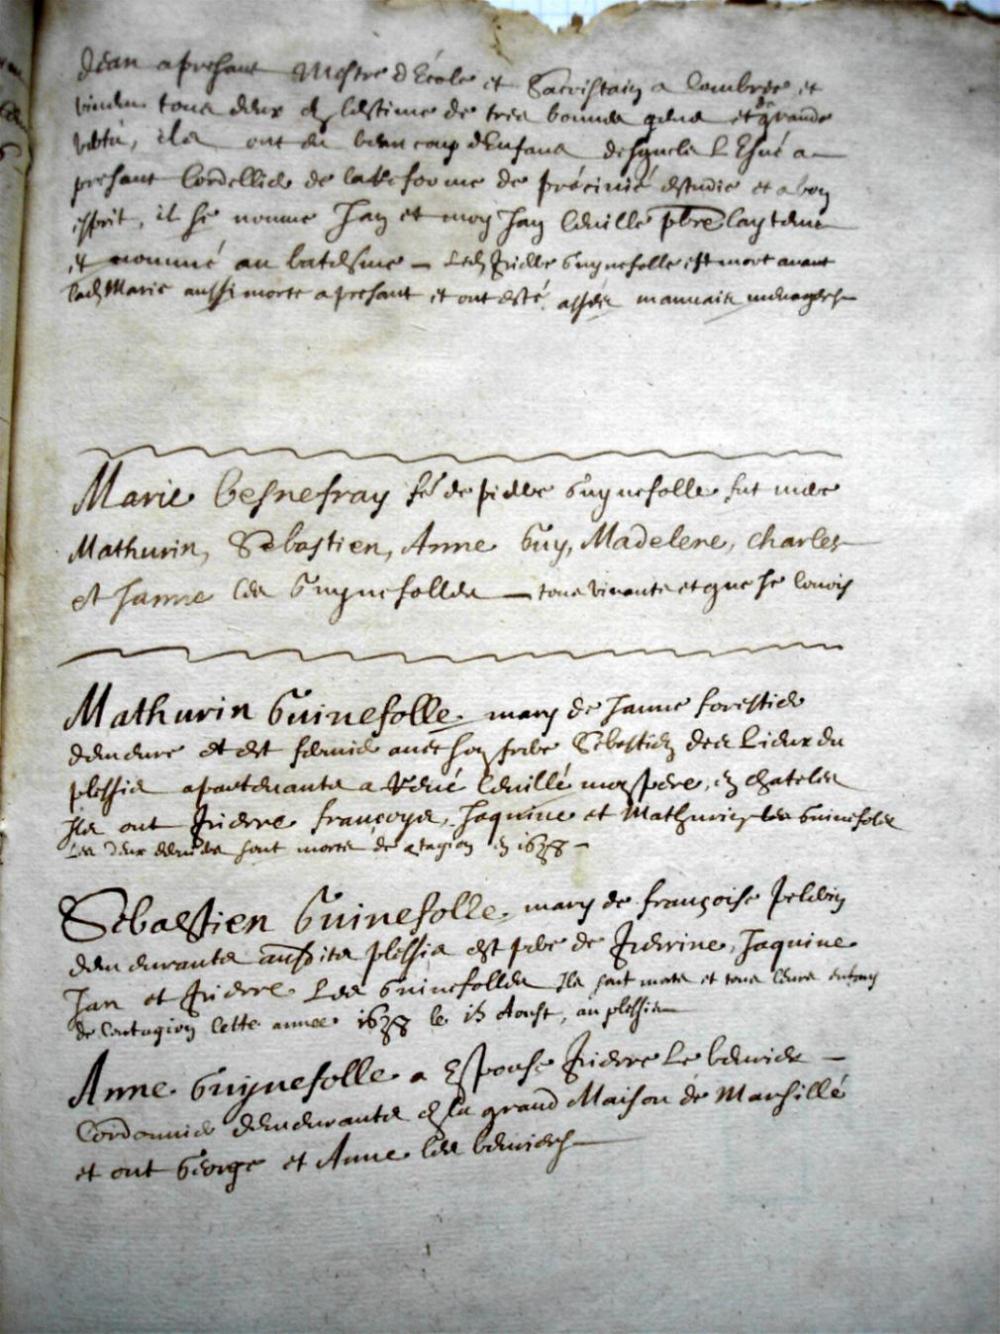 Jean apresant Mestre d'Ecole et Sacristain a Combree et
vindrent tous deux en lestime de tres bonnes gens et de grande
vertu, ils ont eu beaucoup d'Enfans desquels l'Esné a
presant Cordellier de la Reforme de précinié estudie et a bon
esprit, il se nomme Jan et moy Jan Ceuillé pbre lay tenu
et nommé au batesme — Led. Pierre Guynefolle est mort avant
lad. Marie aussi morte apresant et ont esté assés mauvais menagers
Marie besnefray fe de pierre Guynefolle fut mere
Mathurin, Sebastien, Anne Guy, Madelene, Charles
et Janne les Guynefolles — tous vivants et que je conois
Mathurin Guinefolle mary de Janne forestier
demeure et est fermier avec son frere Sebastien des Lieux du
plessis apartenants a René Ceuillé mon pere, en Chateles
Ils ont Pierre françoys, Jaquine et Mathurin les Guinefoles
Les deux derniers sont morts de contagion en 1638 -
Sebastien Guinefolle mary de françoise pelerin
demeurants aussi plessis est pere de Perrine, Jaquine
Jan et Pierre Les Guinefolles Ils sont morts et tous leurs enfans
de Contagion cette annee 1638 le 15 Aoust, au plessis
Anne Guynefolle a Espousé Pierre Le bervier —
Cordonnier demeurants en la grand Maison de Marsillé
et ont George et Anne les berviers